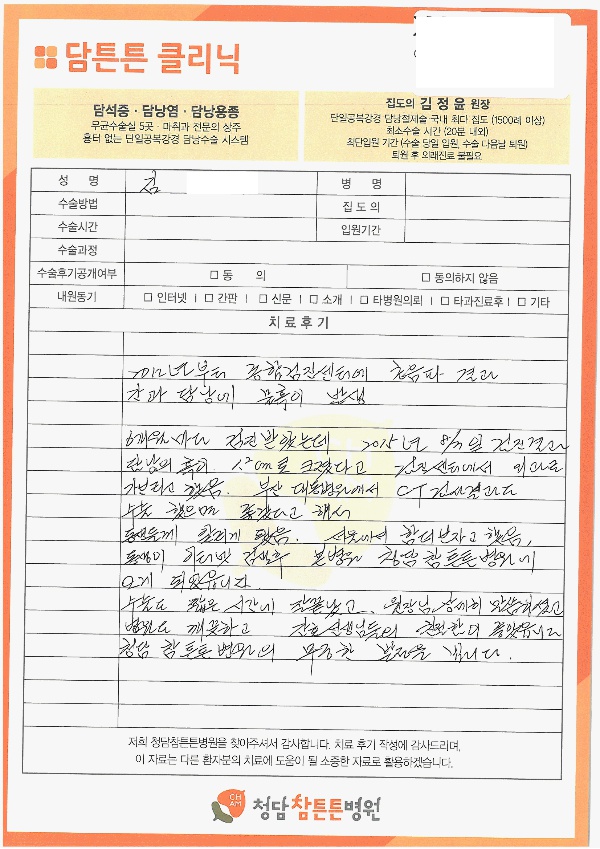 담튼튼 클리닉
담석증 · 담낭염 · 담낭용종
무균수술실 5곳 · 마취과 전문의 상주
흉터 없는 단일공복강경 담낭수술 시스템
집도의 김정윤 원장
단일공복강경 담낭절제술 국내 최다 집도 (1500례 이상)
최소수술 시간 (20분 내외)
최단입원 기간 (수술 당일 입원, 수술 다음날 퇴원)
퇴원 후 외래진료 불필요
성 명 김 병 명
수술방법 집 도 의
수술시간 입원기간
수술과정
수술후기공개여부 □ 동 의 □ 동의하지 않음
내원동기 □ 인터넷 | □ 간판 | □ 신문 | □ 소개 | □ 타병원의뢰 | □ 타과진료후 | □ 기타
치료후기
2012년부터 종합검진센터에 초음파 결과
간과 담낭에 물혹이 발생
6개월마다 검진받았는데 2015년 8/7일 검진결과
담낭의 혹이 1.2cm로 커졌다고 검진센터에서 외과로
가보라고 했음. 부산 대동병원에서 CT 검사결과도
수술 했으면 좋겠다고 해서
동생들께 알리게 됐음. 서울에서 함더보자고 했음,
동생이 인터넷 검색후 본병원 청담참튼튼병원에
오게 되었습니다
수술도 짧은 시간에 잘끝났고.. 원장님 상세히 말씀하셨고
병원도 깨끗하고 간호선생님들의 친절한더 좋았습니다
청담 참튼튼병원의 무궁한 발전을 빕니다.
저희 청담참튼튼병원을 찾아주셔서 감사합니다. 치료 후기 작성에 감사드리며,
이 자료는 다른 환자분의 치료에 도움이 될 소중한 자료로 활용하겠습니다.
CH AM 청담참튼튼병원